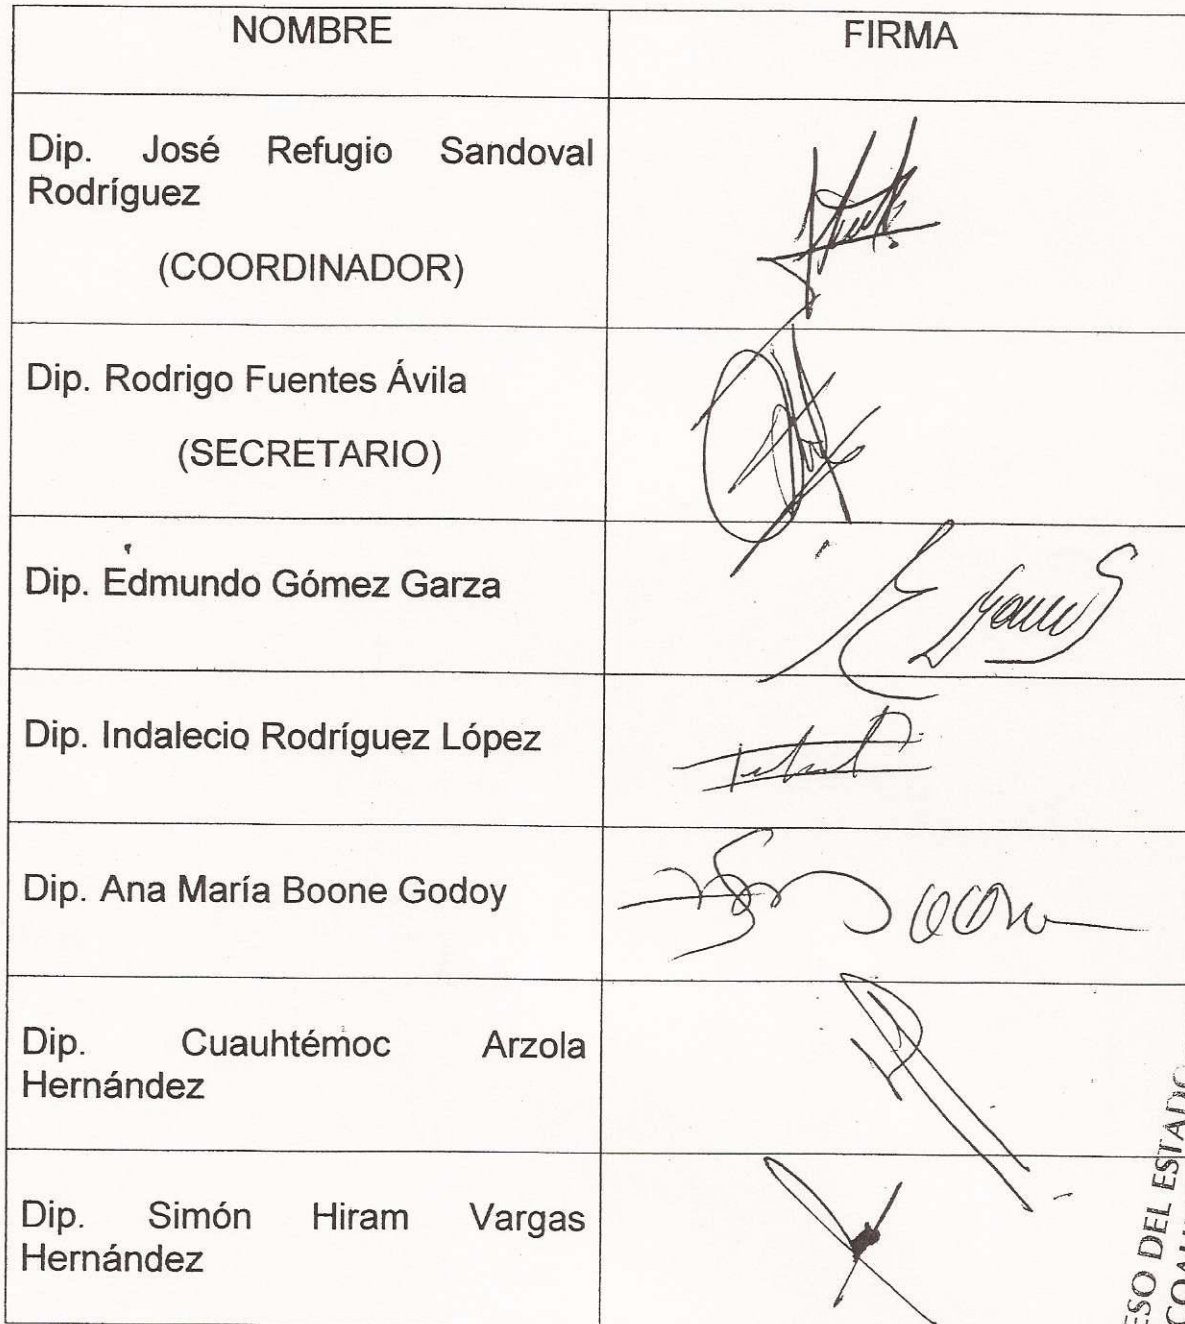 NOMBRE
FIRMA
Dip. José Refugio Sandoval
Rodríguez
(COORDINADOR)
Dip. Rodrigo Fuentes Ávila
(SECRETARIO)
Dip. Edmundo Gómez Garza
Dip. Indalecio Rodríguez López
Dip. Ana María Boone Godoy
Dip. Cuauhtémoc Arzola
Hernández
Dip. Simón Hiram Vargas
Hernández
DEL ESTADO